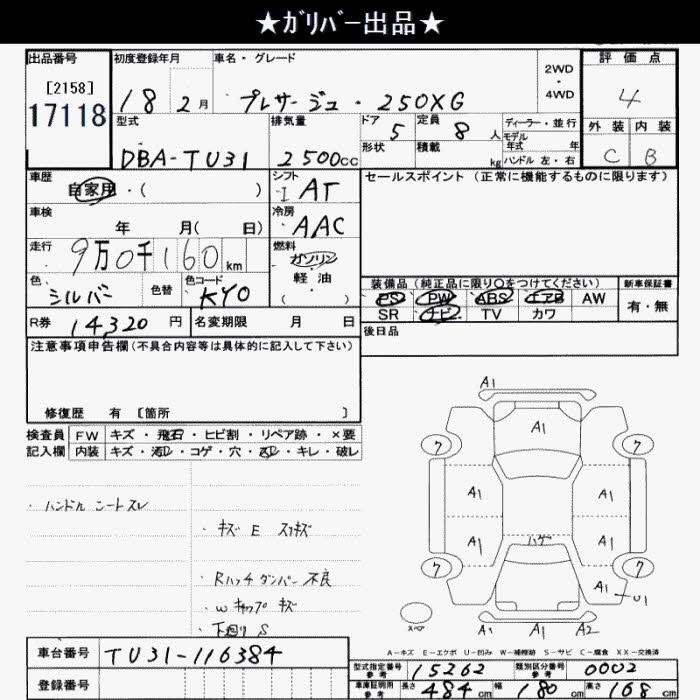 ★ガリバー出品★
出品番号
[2158]
17118
初度登録年月
18 2月
車名・グレード
プレサージュ・250XG
2WD
・
4WD
評価点
4
外装 内装
C B
型式
DBA-TU31
排気量
2500cc
ドア
5
定員
8 人
形状
積載
kg
ディーラー・並行
モデル
年式 年
ハンドル 左・右
車歴
自家用・( )
シフト
I AT
車検
年 月( 日)
冷房
AAC
走行
9万0千160km
燃料
ガソリン
軽・油
( )
色
シルバー
色替
色コード
KY0
R券 14320 円
名変期限 月 日
セールスポイント(正常に機能するものに限ります)
装備品(純正品に限り○をつけてください)
PS PW ABS エアB AW
SR ナビ TV カワ
新車保証書
有・無
後日品
注意事項申告欄(不具合内容等は具体的に記入して下さい)
修復歴 有 [箇所 ]
検査員
記入欄
FW キズ・飛石・ヒビ割・リペア跡・×要
内装 キズ・汚・コゲ・穴・・キレ・破レ
・ハンドル シートスレ
・キズ E スリキズ
・Rハッチ ダンパー 不良
・W キャップ キズ
・下廻り S
A1
A1
7 7
A1 A1
A1 ハゲ A1
7 7
A1 U1
スペア
A1 A1 A2
A-キズ E-エクボ U-凹み W-補修跡 S-サビ C-腐食 XX-交換済
車台番号 TU31-116384
登録番号
型式指定番号
参考
15262
類別区分番号
参考
0002
車庫証明用
参考
長さ 484cm 幅 180cm 高さ 168cm